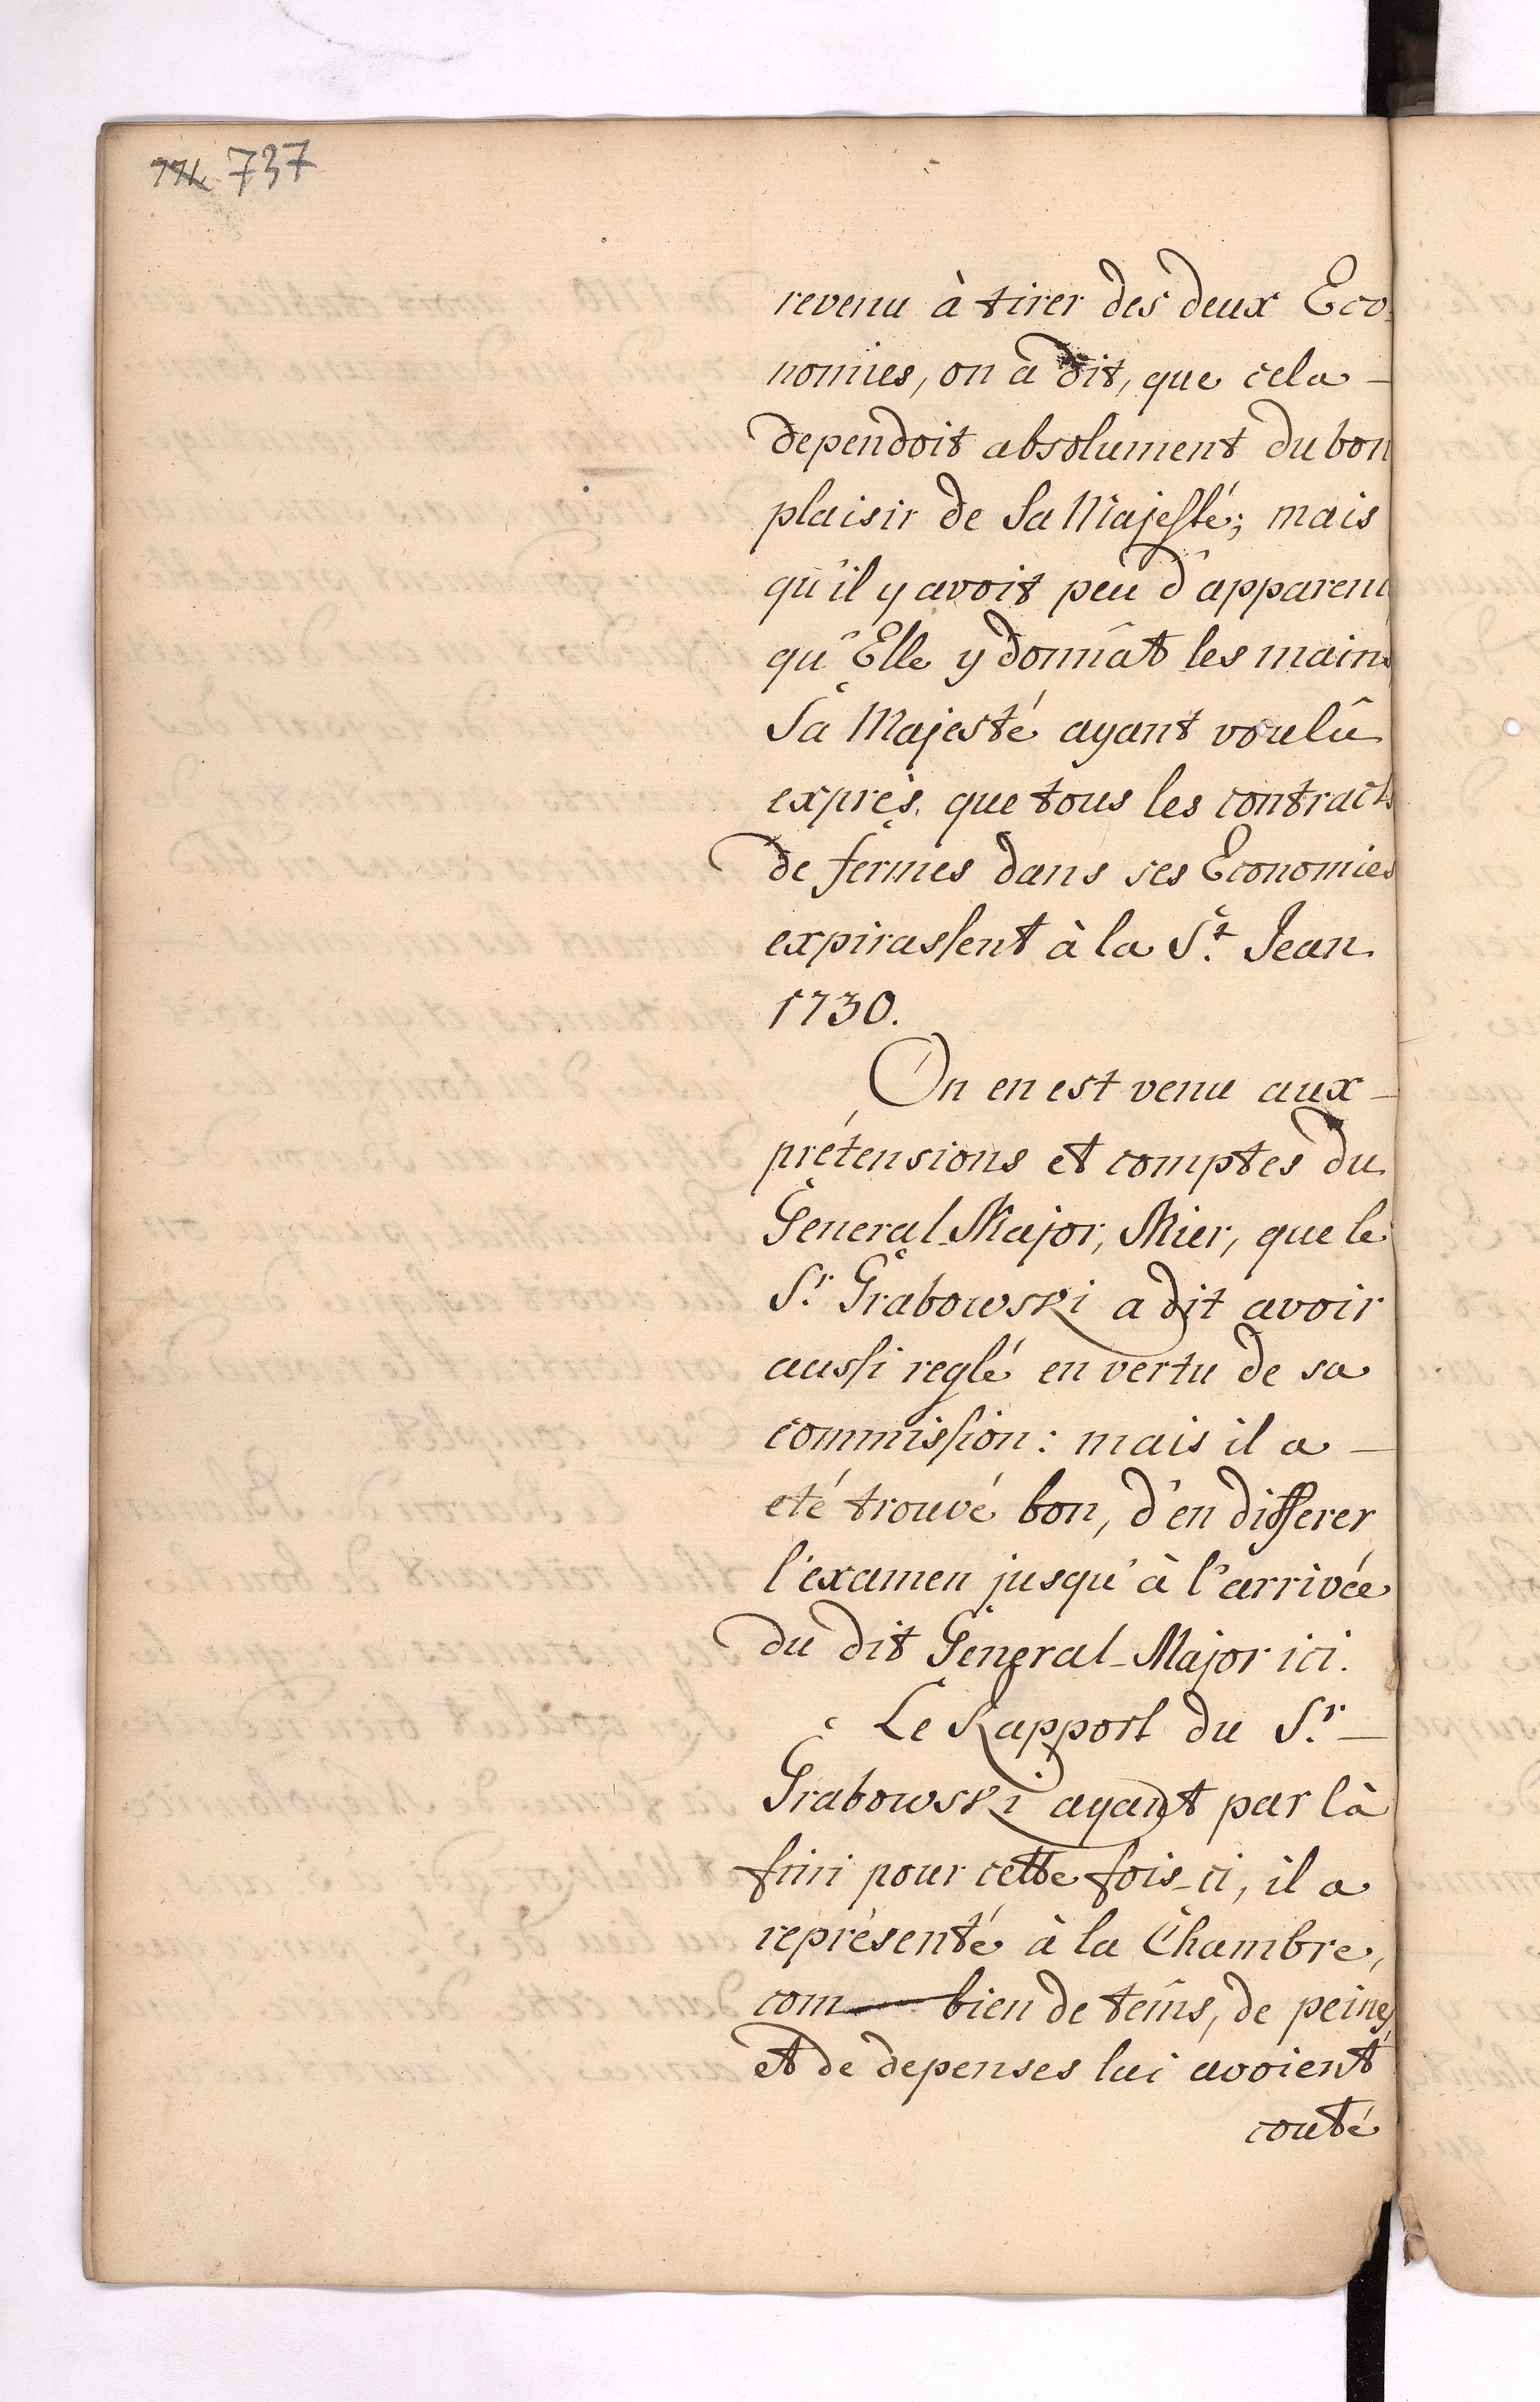 737
revenu à tirer des deux Eco-
nomies, on a dit, que cela
dependoit absolument du bon
plaisir de Sa Majesté; mais
qu'il y avoit peu d'apparenc
qu'Elle y donnât les mains
Sa Majesté ayant voulû
exprès, que tous les contracts
de fermes dans ses Economies
expirassent à la St. Jean
1730.
On en est venu aux
prétensions et comptes du
General-Major, Mier, que le
Sr. Grabowski a dit avoir
aussi reglé en vertu de sa
commission: mais il a
eté trouvé bon, d'en differer
l'examen jusqu'à l'arrivée
du dit General-Major ici.
Le Rapport du Sr.
Grabowski ayant par là
fini pour cette fois-ci, il a
représenté à la Chambre,
com bien de tems, de peines,
et de depenses lui avoient
couté